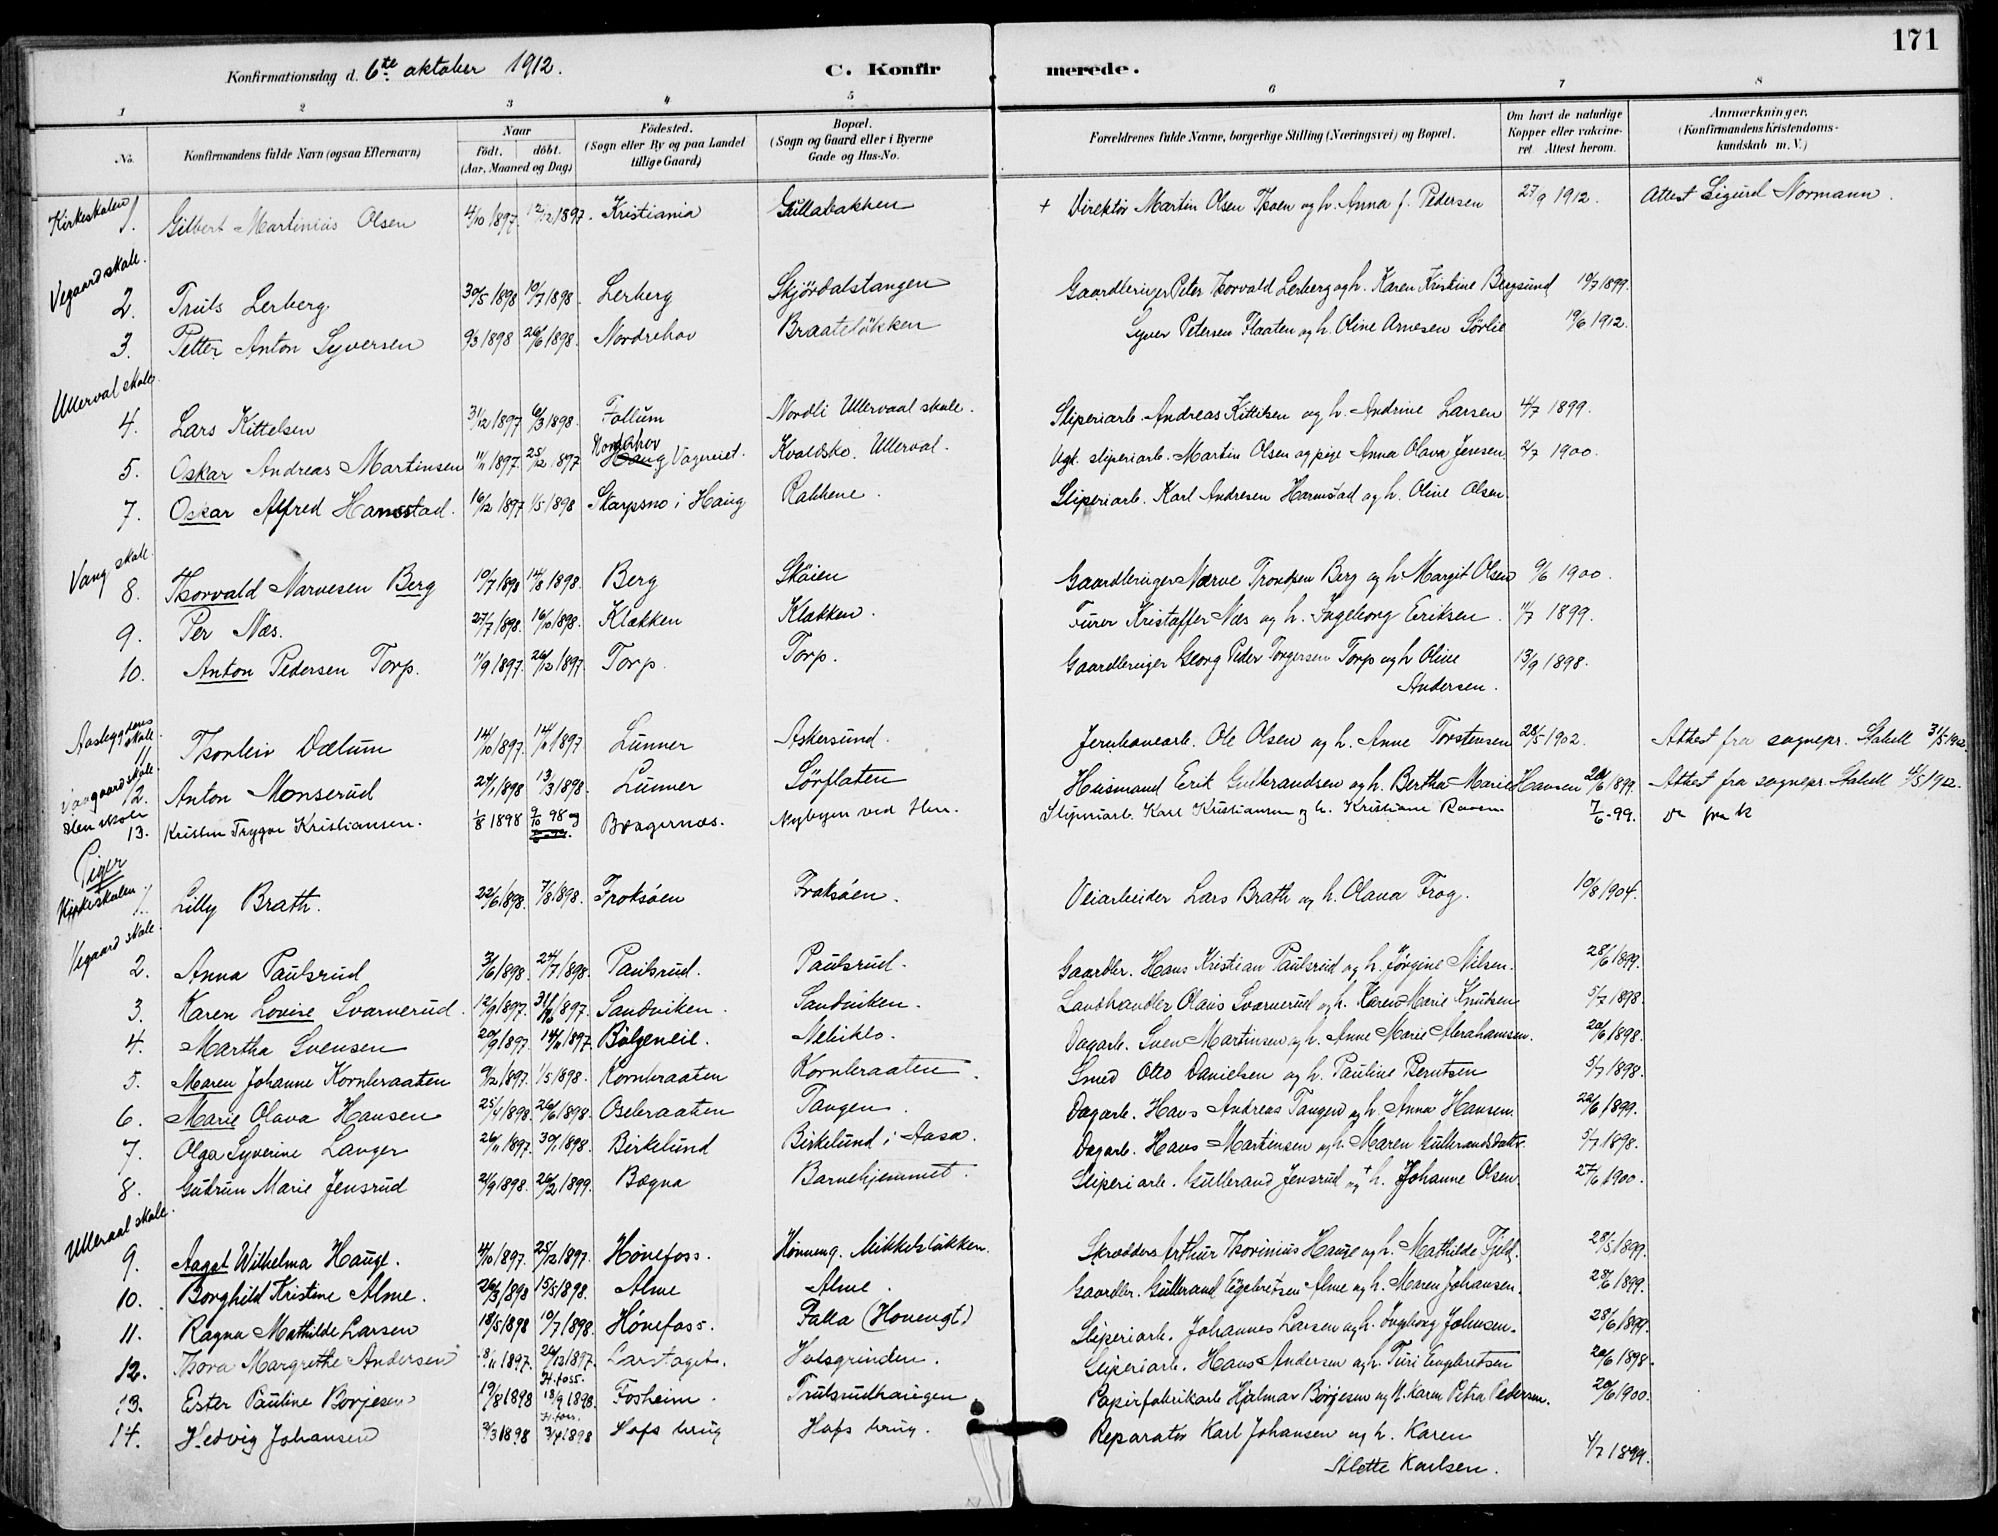 171
Konfirmationsdag d. 6te oktober 1912. C. Konfir merede.
1 2 3 4 5 6 7 8
No. Konfirmandens fulde Navn (ogsaa Efternavn) Naar födt. döbt. (Aar, Maaned og Dag) Födested. (Sogn eller By og paa Landet tillige Gaard) Bopæl. (Sogn og Gaard eller i Byerne Gade og Hus-No. Forældrenes fulde Navne, borgerlige Stilling (Næringsvei) og Bopæl. Om havt de naturlige Kopper eller vakcineret. Attest herom. Anmærkninger. (Konfirmandens Kristendomskundskab m. V.)
Kirkeskolen
1. Gilbert Martinius Olsen 4/10 1897. 12/12 1897. Kristiania Gullabakken + Direktör Martin Olsen Thoen og h. Anna f. Pedersen 27/9 1912. Attest Sigurd Normann.
Vegaard skole.
2. Truls Lerberg. 30/5 1898 10/7 1898. Lerberg Skjördalstangen Gaardbruger Peter Thorvald Lerberg og h. Karen Kristine Bergsund 10/7 1899.
3. Petter Anton Syversen 9/3 1898 26/6 1898. Nordrehov Braatelökken Syver Petersen Flaaten og h. Oline Arnesen Sörlie 19/6 1912.
Ullerval skole
4. Lars Kittelsen 31/12 1897 6/3 1898. Follum Nordli Ullervaal skole. Sliperiarb. Andreas Kittilsen og h. Andrine Larsen 4/7 1899.
5. Oskar Andreas Martinsen 11/11 1897. 25/12 1897 Norderhov Haug Vagereiet. Kvaldsko. Ullerval. Ugt. sliperiarb. Martin Olsen og pige Anna Olava Jensen 2/7 1900.
7. Oskar Alfred Hansstad. 16/12 1897 1/5 1898 Skarpsno i Haug Rakkene. Sliperiarb. Karl Andresen Harmstad og h. Oline Olsen.
Vang skole.
8. Thorvald Narvesen Berg 10/7 1898 14/8 1898. Berg Skøien Gaardbruger Narve Trondsen Berg og h. Margit Olsen 9/6 1900.
9. Per Næs. 27/7 1898. 16/10 1898. Klækken Klækken. Furer Kristoffer Næs og h. Ingeborg Eriksen. 11/7 1899.
10. Anton Pedersen Torp. 11/9 1897. 26/12 1897 Torp. Torp. Gaardbruger Georg Peder Torgersen Torp og h Oline 13/9 1898.
Andersen.
Aasbygdens skole
11 Thorleiv Dælum 14/10 1897. 14/11 1897 Lunner Askersund. Jernbanearb. Ole Olsen og h. Anne Torstensen 28/5 1902. Attest fra sognepr. Stabell 31/5 1912
Vaagaard skole
12. Anton Monserud 24/1 1898 13/3 1898. Lunner Sörflaten Husmand Erik Gulbrandsen og h. Bertha Marie Hansen 20/6 1899. Attest fra sognepr. Stabell 4/5 1912.
Hen skole
13. Kristen Trygve Kristiansen. 1/8 1898 9/10 98 Bragernæs. Nybyen ved Hen. Sliperiarb. Karl Kristiansen og h. Kristiane Raven 7/6-99.
Piger
Kirkeskolen.
1. Lilly Brath. 22/6 1898. 7/8 1898. Froksöen Froksöen. Veiarbeider Lars Brath og h. Olava Frog. 10/8 1904.
Vegaard skole.
2. Anna Paulsrud 3/6 1898. 24/7 1898. Paulsrud. Paulsrud. Gaardbr. Hans Kristian Paulsrud og h. Jörgine Nilsen. 28/6 1899.
3. Karen Lovise Svarverud. 12/9 1897. 31/10 1897. Sandviken. Sandviken. Landhandler Olaus Svarverud og h. Karen Marie Knutsen 5/7 1898.
4. Martha Svensen 20/9 1897. 14/11 1897. Bölgeneie. Nebiklo. Dagarb. Sven Martinsen og h. Anne Marie Abrahamsen. 20/6 1898.
5. Maren Johanne Kornbraaten 9/12 1897. 1/5 1898. Kornbraaten Kornbraaten. Smed Otto Danielsen og h. Pauline Berntsen 5/7 1898.
6. Marie Olava Hansen 25/4 1898. 26/6 1898. Osebraaten Tangen. Dagarb. Hans Andreas Tangen og h. Anna Hansen. 22/6 1899.
7. Olga Syverine Langer 26/11 1897. 30/1 1898. Birkelund Birkelund i Aasa. Dagarb. Hans Martinsen og h. Maren Gulbrandsdatt. 5/7 1898.
8. Gudrun Marie Jensrud 21/9 1898. 26/2 1899. Bægna Barnehjemmet. Sliperiarb. Gulbrand Jensrud og + h. Johanne Olsen. 27/6 1900.
Ulleraal skole.
9. Aagot Wilhelma Hauge. 4/10 1897. 25/12 1897. Hönefoss. Hönneng. Mikkelslökken. Skrædder Arthur Thorvinius Hauge og h. Mathilde Fjeld. 28/5 1899.
10. Borghild Kristine Alme. 26/3 1898 15/5 1898. Alme Alme. Gaardbr. Gulbrand Engebretsen Alme og h. Maren Johansen. 28/6 1899.
11. Ragna Mathilde Larsen 18/5 1898 10/7 1898. Hönefoss. Falla (Hovengt) Sliperiarb. Johannes Larsen og h. Ingeborg Johnsen. 28/6 1899.
12. Thora Margrethe Andersen 8/11 1897. 26/12 1897. Larstaget. Hvlsgrinden. Sliperiarb. Hans Andersen og h. Turi Engebretsen 20/6 1898.
H.foss.
13. Ester Pauline Borjesen 19/8 1898 18/9 1898. Fosheim. Trulsrudhaugen Papirfabrikarb Hjalmar Börjesen og h. Karen Petra Pedersen. 20/6 1900.
H.foss.
14. Hedvig Johansen 3/3 1898 3/4 1898 Hofs brug Hofs brug. Reparatör Karl Johansen og h. Karen 4/7 1899.
Alette Karlsen.